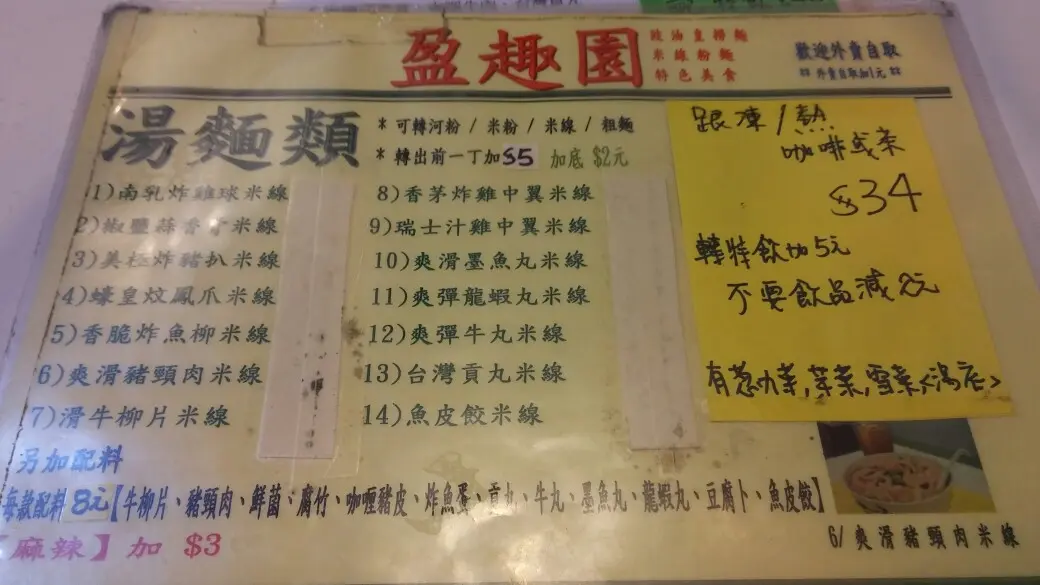 盈趣園
豉油皇撈麵
米線粉麵
特色美食
歡迎外賣自取
## 外賣自取加1元 ##
湯麵類
* 可轉河粉 / 米粉 / 米線 / 粗麵
* 轉出前一丁加$5 加底 $2元
1)南乳炸雞球米線
2)椒鹽蒜香 米線
3)美極炸豬扒米線
4)蠔皇炆鳳爪米線
5)香脆炸魚柳米線
6)爽滑豬頸肉米線
7)滑牛柳片米線
8)香茅炸雞中翼米線
9)瑞士汁雞中翼米線
10)爽滑墨魚丸米線
11)爽彈龍蝦丸米線
12)爽彈牛丸米線
13)台灣貢丸米線
14)魚皮餃米線
跟凍/熱
咖啡或茶
$34
轉特飲加5元
不要飲品減2元
有蔥 菜,芽菜,雪菜<湯底>
另加配料
每款配料8元【牛柳片、豬頸肉、鮮菌、腐竹、咖喱豬皮、炸魚蛋、貢丸、牛丸、墨魚丸、龍蝦丸、豆腐卜、魚皮餃】
【麻辣】加 $3
6/爽滑豬頸肉米線